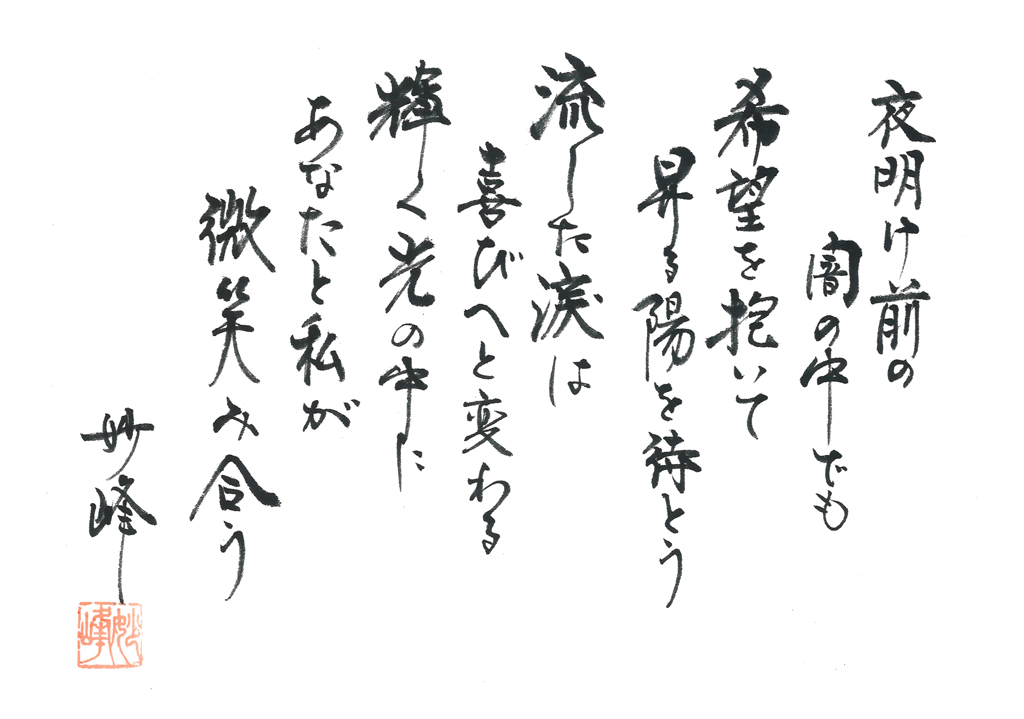 夜明け前の
闇の中でも
希望を抱いて
昇る陽を待とう
流した涙は
喜びへと変わる
輝く光の中に
あなたと私が
微笑み合う
妙峰
妙峰